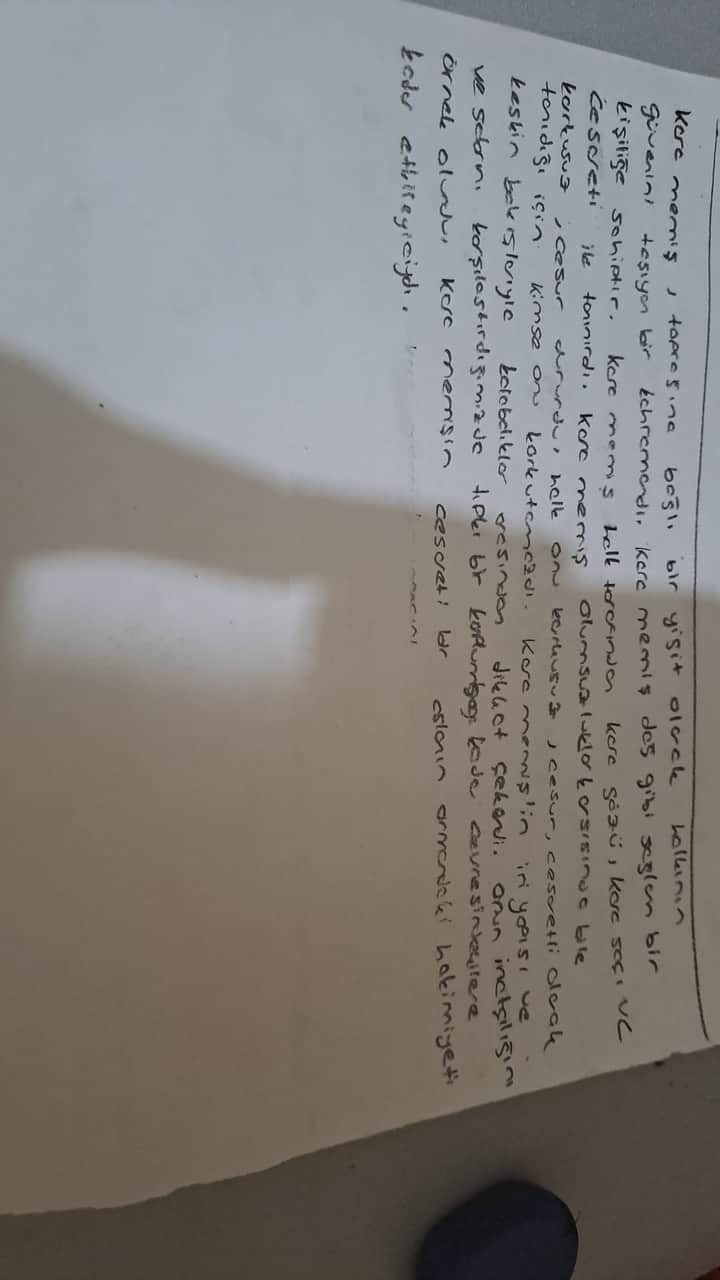 Kara memiş, toprağına bağlı bir yiğit olarak halkının
güvenini taşıyan bir kahramandı. Kara memiş dağ gibi sağlam bir
kişiliğe sahiptir. Kara memiş halk tarafından kara gözü, kara saçı ve
cesareti ile tanınırdı. Kara memiş olumsuzluklar karşısında bile
korkusuz, cesur dururdu, halk onu korkusuz, cesur, cesaretli olarak
tanıdığı için kimse onu korkutamazdı. Kara memiş'in iri yapısı ve
keskin bakışlarıyla kalabalıklar arasından dikkat çekerdi. Onun inatçılığını
ve sabrını karşılaştırdığımızda tıpkı bir kadar çevresindekilere
örnek olurdu. Kara memişin cesareti bir aslanın ormandaki hakimiyeti
kadar etkileyiciydi.